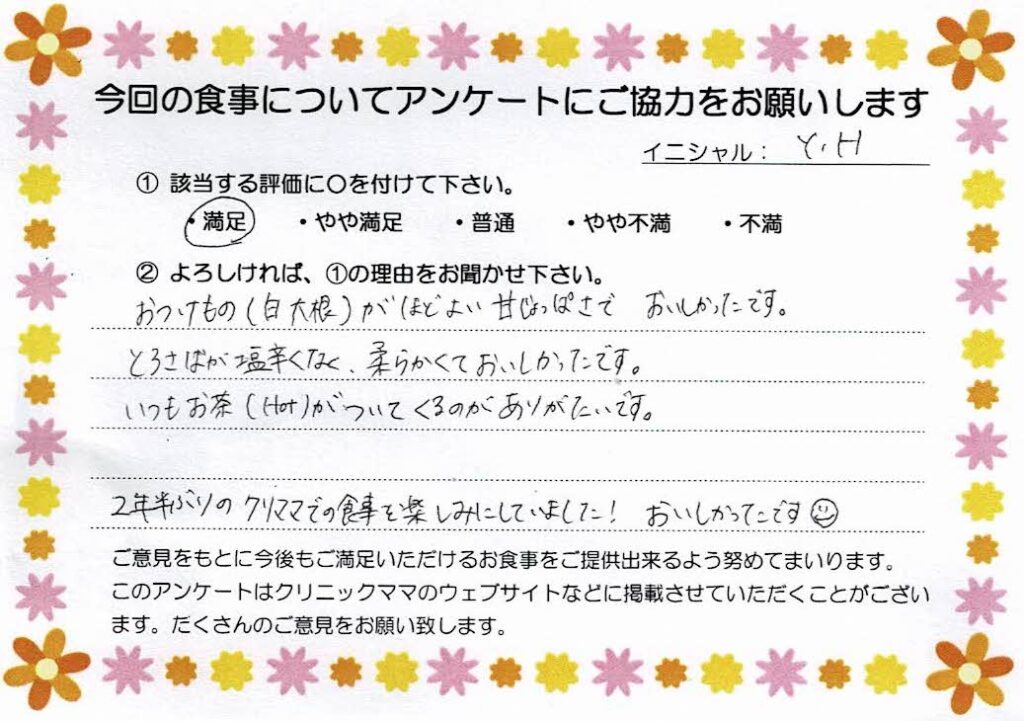 今回の食事についてアンケートにご協力をお願いします
イニシャル： Y.H
① 該当する評価に○を付けて下さい。
・満足 ・やや満足 ・普通 ・やや不満 ・不満
② よろしければ、①の理由をお聞かせ下さい。
おつけもの(白大根)がほどよい甘じょっぱさで おいしかったです。
とろさばが塩辛くなく、柔らかくておいしかったです。
いつもお茶(Hot)がついてくるのがありがたいです。
2年半ぶりのクリママでの食事を楽しみにしていました! おいしかってです
ご意見をもとに今後もご満足いただけるお食事をご提供出来るよう努めてまいります。
このアンケートはクリニックママのウェブサイトなどに掲載させていただくことがござい
ます。たくさんのご意見をお願い致します。